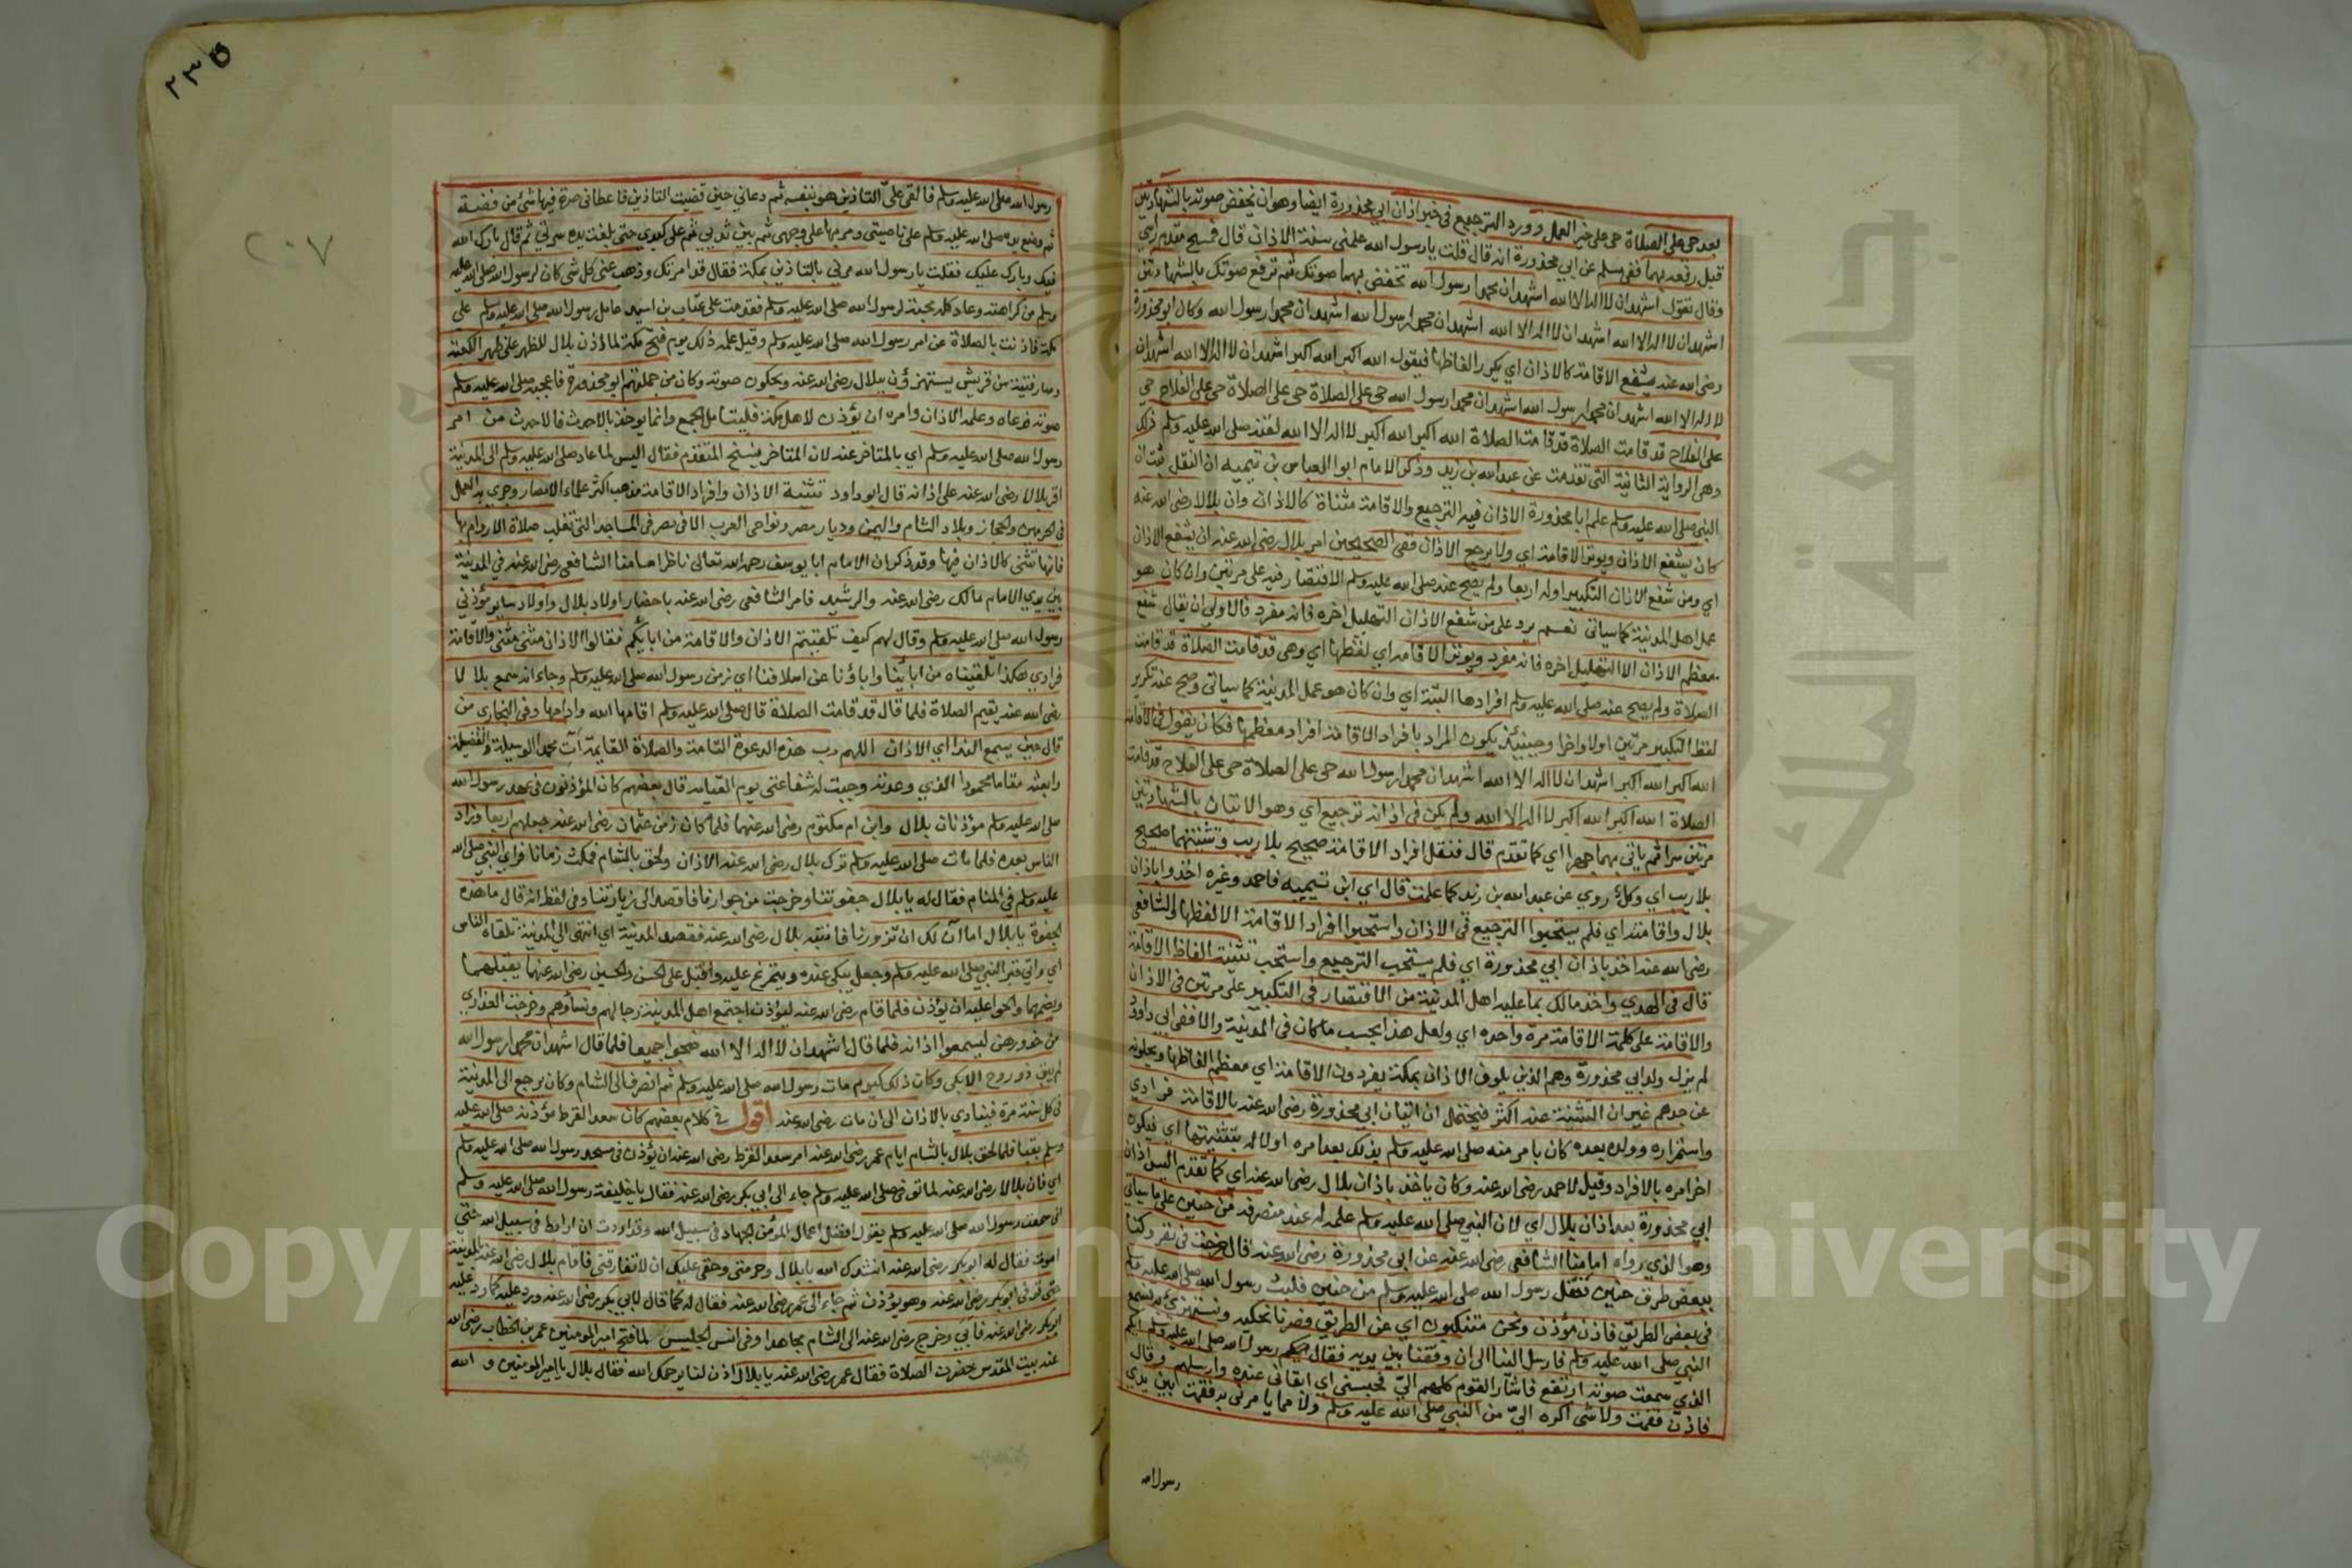 بعد حي على الصلاة حي على خير العمل وورد الترجيع في خبر اذان ابي محذورة ايضا وهو ان يخفض صوته بالشهادتين
قبل رفعه بهما ففي مسلم عن ابي محذورة انه قال قلت يا رسول الله علمني سنة الاذان قال فمسح مقدم راسي
وقال تقول اشهد ان لا اله الا الله اشهد ان محمدا رسول الله تخفض بهما صوتك ثم ترفع صوتك بالشهادتين
اشهد ان لا اله الا الله اشهد ان لا اله الا الله اشهد ان محمدا رسول الله اشهد ان محمدا رسول الله وكان ابو محذورة
رضي الله عنه يشفع الاقامة كالاذان اي يكرر الفاظها فيقول الله اكبر الله اكبر اشهد ان لا اله الا الله اشهد ان
لا اله الا الله اشهد ان محمدا رسول الله اشهد ان محمدا رسول الله حي على الصلاة حي على الصلاة حي على الفلاح حي
على الفلاح قد قامت الصلاة قد قامت الصلاة الله اكبر الله اكبر لا اله الا الله لقنه صلى الله عليه وسلم ذلك
وهي الرواية الثانية التي تقدمت عن عبد الله بن زيد وذكر الامام ابو العباس بن تيميه ان النقل ثبت ان
النبي صلى الله عليه وسلم علم ابا محذورة الاذان فيه الترجيع والاقامة مثناة كالاذان وان بلالا رضي الله عنه
كان يشفع الاذان ويوتر الاقامة اي ولا يرجع الاذان ففي الصحيحين امر بلال رضي الله عنه ان يشفع الاذان
اي ومن شفع الاذان التكبير اوله اربعا ولم يصح عنه صلى الله عليه وسلم الاقتصار فيه على مرتين وان كان هو
عمل اهل المدينة كما سياتي نعم يرد على من شفع الاذان التهليل اخره فانه مفرد فالاولى ان يقال شفع
معظم الاذان الا التهليل اخره فانه مفرد ويوتر الاقامة اي لفظها اي وهي قد قامت الصلاة قد قامت
الصلاة ولم يصح عنه صلى الله عليه وسلم افرادها البتة اي وان كان هو عمل المدينة كما سياتي وصح عنه تكرير
لفظ التكبير مرتين اولا واخرا وحينئذ يكون المراد بافراد الاقامة افراد معظمها فكان يقول في الاقامة
الله اكبر الله اكبر اشهد ان لا اله الا الله اشهد ان محمدا رسول الله حي على الصلاة حي على الفلاح قد قامت
الصلاة الله اكبر الله اكبر لا اله الا الله ولم يكن في اذانه ترجيع اي وهو الاتيان بالشهادتين
مرتين سرا ثم ياتي بهما جهرا اي كما تقدم قال فنقل افراد الاقامة صحيح بلا ريب وتثنيتها صحيح
بلا ريب اي وكل روي عن عبد الله بن زيد كما علمت قال اي ابن تيميه فاحمد وغيره اخذوا باذان
بلال واقامته اي فلم يستحبوا الترجيع في الاذان واستحبوا افراد الاقامة الا لفظها والشافعي
رضي الله عنه اخذ باذان ابي محذورة اي فلم يستحب الترجيع واستحب تثنية الفاظ الاقامة
قال في الهدي واخذ مالك بما عليه اهل المدينة من الاقتصار في التكبير على مرتين في الاذان
والاقامة على كلمة الاقامة مرة واحدة اي ولعل هذا بحسب ما كان في المدينة والا ففي ابي داود
لم يزل ولد ابي محذورة وهم الذين يلون الاذان بمكة يفردون الاقامة اي معظم الفاظها ويحكونه
عن جدهم غير ان التثنية عنه اكثر فيحتمل ان اتيان ابي محذورة رضي الله عنه بالاقامة فرادي
واستمراره وولده بعده كان بامر منه صلى الله عليه وسلم بذلك بعد امره اولا له بتثنيتها اي فيكون
اخر امره بالافراد وقيل لاحمد رضي الله عنه وكان ياخذ باذان بلال رضي الله عنه اي كما تقدم اليس اذان
ابي محذورة بعد اذان بلال اي لان النبي صلى الله عليه وسلم علمه له عند منصرفه من حنين على ما سياتي
وهو الذي رواه امامنا الشافعي رضي الله عنه عن ابي محذورة رضي الله عنه قال خرجت في نفر وكنا
ببعض طرق حنين فقفل رسول الله صلى الله عليه وسلم من حنين فلقينا رسول الله صلى الله عليه وسلم
في بعض الطريق فاذن مؤذن ونحن متنكبون اي عن الطريق فصرنا نحكيه ونستهزئ به فسمع
النبي صلى الله عليه وسلم فارسل الينا الى ان وقفنا بين يديه فقال رسول الله صلى الله عليه وسلم ايكم
الذي سمعت صوته ارتفع فاشار القوم كلهم الي فحبسني اي ابقاني عنده وارسلهم وقال
فاذن فقمت ولا شي اكره الي من النبي صلى الله عليه وسلم ولا مما يامرني به فقمت بين يدي
رسول الله
٢٣٥
٢٠٧
رسول الله صلى الله عليه وسلم فالقى علي التاذين هو بنفسه ثم دعاني حين قضيت التاذين فاعطاني صرة فيها شئ من فضة
ثم وضع يده صلى الله عليه وسلم على ناصيتي ومر بها على وجهي ثم بين ثديي ثم على كبدي حتى بلغت يده سرتي ثم قال بارك الله
فيك وبارك عليك فقلت يا رسول الله مرني بالتاذين بمكة فقال قد امرتك وذهب عني كل شي كان لرسول الله صلى الله عليه
وسلم من كراهته وعاد كله محبة لرسول الله صلى الله عليه وسلم فقدمت على عتاب بن اسيد عامل رسول الله صلى الله عليه وسلم على
مكة فاذنت بالصلاة عن امر رسول الله صلى الله عليه وسلم وقيل علمه ذلك يوم فتح مكة لما اذن بلال للظهر على ظهر الكعبة
وصار فتية من قريش يستهزؤن ببلال رضي الله عنه ويحكون صوته وكان من جملتهم ابو محذورة فاعجبه صلى الله عليه وسلم
صوته فدعاه وعلمه الاذان وامره ان يؤذن لاهل مكة فليتامل الجمع وانما يوخذ بالاحدث فالاحدث من امر
رسول الله صلى الله عليه وسلم اي بالمتاخر عنه لان المتاخر ينسخ المتقدم فقال اليس لما عاد صلى الله عليه وسلم الى المدينة
اقر بلالا رضي الله عنه على اذانه قال ابو داود تثنية الاذان وافراد الاقامة مذهب اكثر علماء الامصار وجرى به العمل
في الحرمين والحجاز وبلاد الشام واليمن وديار مصر ونواحي الغرب الا في مصر في المساجد التي تغلب صلاة الاروام بها
فانها تثنى كالاذان فيها وقد ذكر ان الامام ابا يوسف رحمه الله تعالى ناظر امامنا الشافعي رضي الله عنه في المدينة
بين يدي الامام مالك رضي الله عنه والرشيد فامر الشافعي رضي الله عنه باحضار اولاد بلال واولاد ساير مؤذني
رسول الله صلى الله عليه وسلم وقال لهم كيف تلقيتم الاذان والاقامة من ابايكم فقالوا الاذان مثنى مثنى والاقامة
فرادي هكذا تلقيناه من ابائنا واباؤنا عن اسلافنا اي زمن رسول الله صلى الله عليه وسلم وجاء انه سمع بلالا
رضي الله عنه يقيم الصلاة فلما قال قد قامت الصلاة قال صلى الله عليه وسلم اقامها الله وادامها وفي البخاري من
قال حين يسمع الندا اي الاذان اللهم رب هذه الدعوة التامة والصلاة القايمة آت محمدا الوسيلة والفضيلة
وابعثه مقاما محمودا الذي وعدته وجبت له شفاعتي يوم القيامة قال بعضهم كان المؤذنون في عهد رسول الله
صلى الله عليه وسلم مؤذنان بلال وابن ام مكتوم رضي الله عنهما فلما كان زمن عثمان رضي الله عنه جعلهم اربعا وزاد
الناس بعده فلما مات صلى الله عليه وسلم ترك بلال رضي الله عنه الاذان ولحق بالشام فمكث زمانا فراي النبي صلى الله
عليه وسلم في المنام فقال له يا بلال جفوتنا وخرجت من جوارنا فاقصد الى زيارتنا وفي لفظ انه قال ما هذه
الجفوة يا بلال اما آن لك ان تزورنا فانتبه بلال رضي الله عنه فقصد المدينة اي انتهى الى المدينة تلقاه الناس
اي واتي قبر النبي صلى الله عليه وسلم وجعل يبكي عنده ويتمرغ عليه واقبل على الحسن والحسين رضي الله عنهما يقبلهما
ويضمهما والحوا عليه ان يؤذن فلما قام رضي الله عنه ليؤذن اجتمع اهل المدينة رجالهم ونساؤهم وخرجت العذارى
من خدورهن ليسمعوا اذانه فلما قال اشهد ان لا اله الا الله ضجوا جميعا فلما قال اشهد ان محمدا رسول الله
لم يبق ذو روح الا بكى وكان ذلك كيوم مات رسول الله صلى الله عليه وسلم ثم انصرف الى الشام وكان يرجع الى المدينة
في كل سنة مرة فينادي بالاذان الى ان مات رضي الله عنه اقول في كلام بعضهم كان سعد القرظ مؤذنه صلى الله عليه
وسلم بقبا فلما لحق بلال بالشام ايام عمر رضي الله عنه امر سعد القرظ رضي الله عنه ان يؤذن في مسجد رسول الله صلى الله عليه وسلم
اي فان بلالا رضي الله عنه لما توفي صلى الله عليه وسلم جاء الى ابي بكر رضي الله عنه فقال يا خليفة رسول الله صلى الله عليه وسلم
اني سمعت رسول الله صلى الله عليه وسلم يقول افضل اعمال المؤمن الجهاد في سبيل الله وقد اردت ان ارابط في سبيل الله حتى
اموت فقال له ابو بكر رضي الله عنه انشدك الله يا بلال وحرمتي وحقي عليك ان لا تفارقني فاقام بلال رضي الله عنه بالمدينة
حتى توفي ابو بكر رضي الله عنه وهو يؤذن ثم جاء الى عمر رضي الله عنه فقال له كما قال لابي بكر رضي الله عنه ورد عليه كما رد عليه
ابو بكر رضي الله عنه فابى وخرج رضي الله عنه الى الشام مجاهدا وفي انس الجليس لما فتح امير المومنين عمر بن الخطاب رضي الله
عنه بيت المقدس حضرت الصلاة فقال عمر رضي الله عنه يا بلال اذن لنا يرحمك الله فقال بلال يا امير المومنين والله